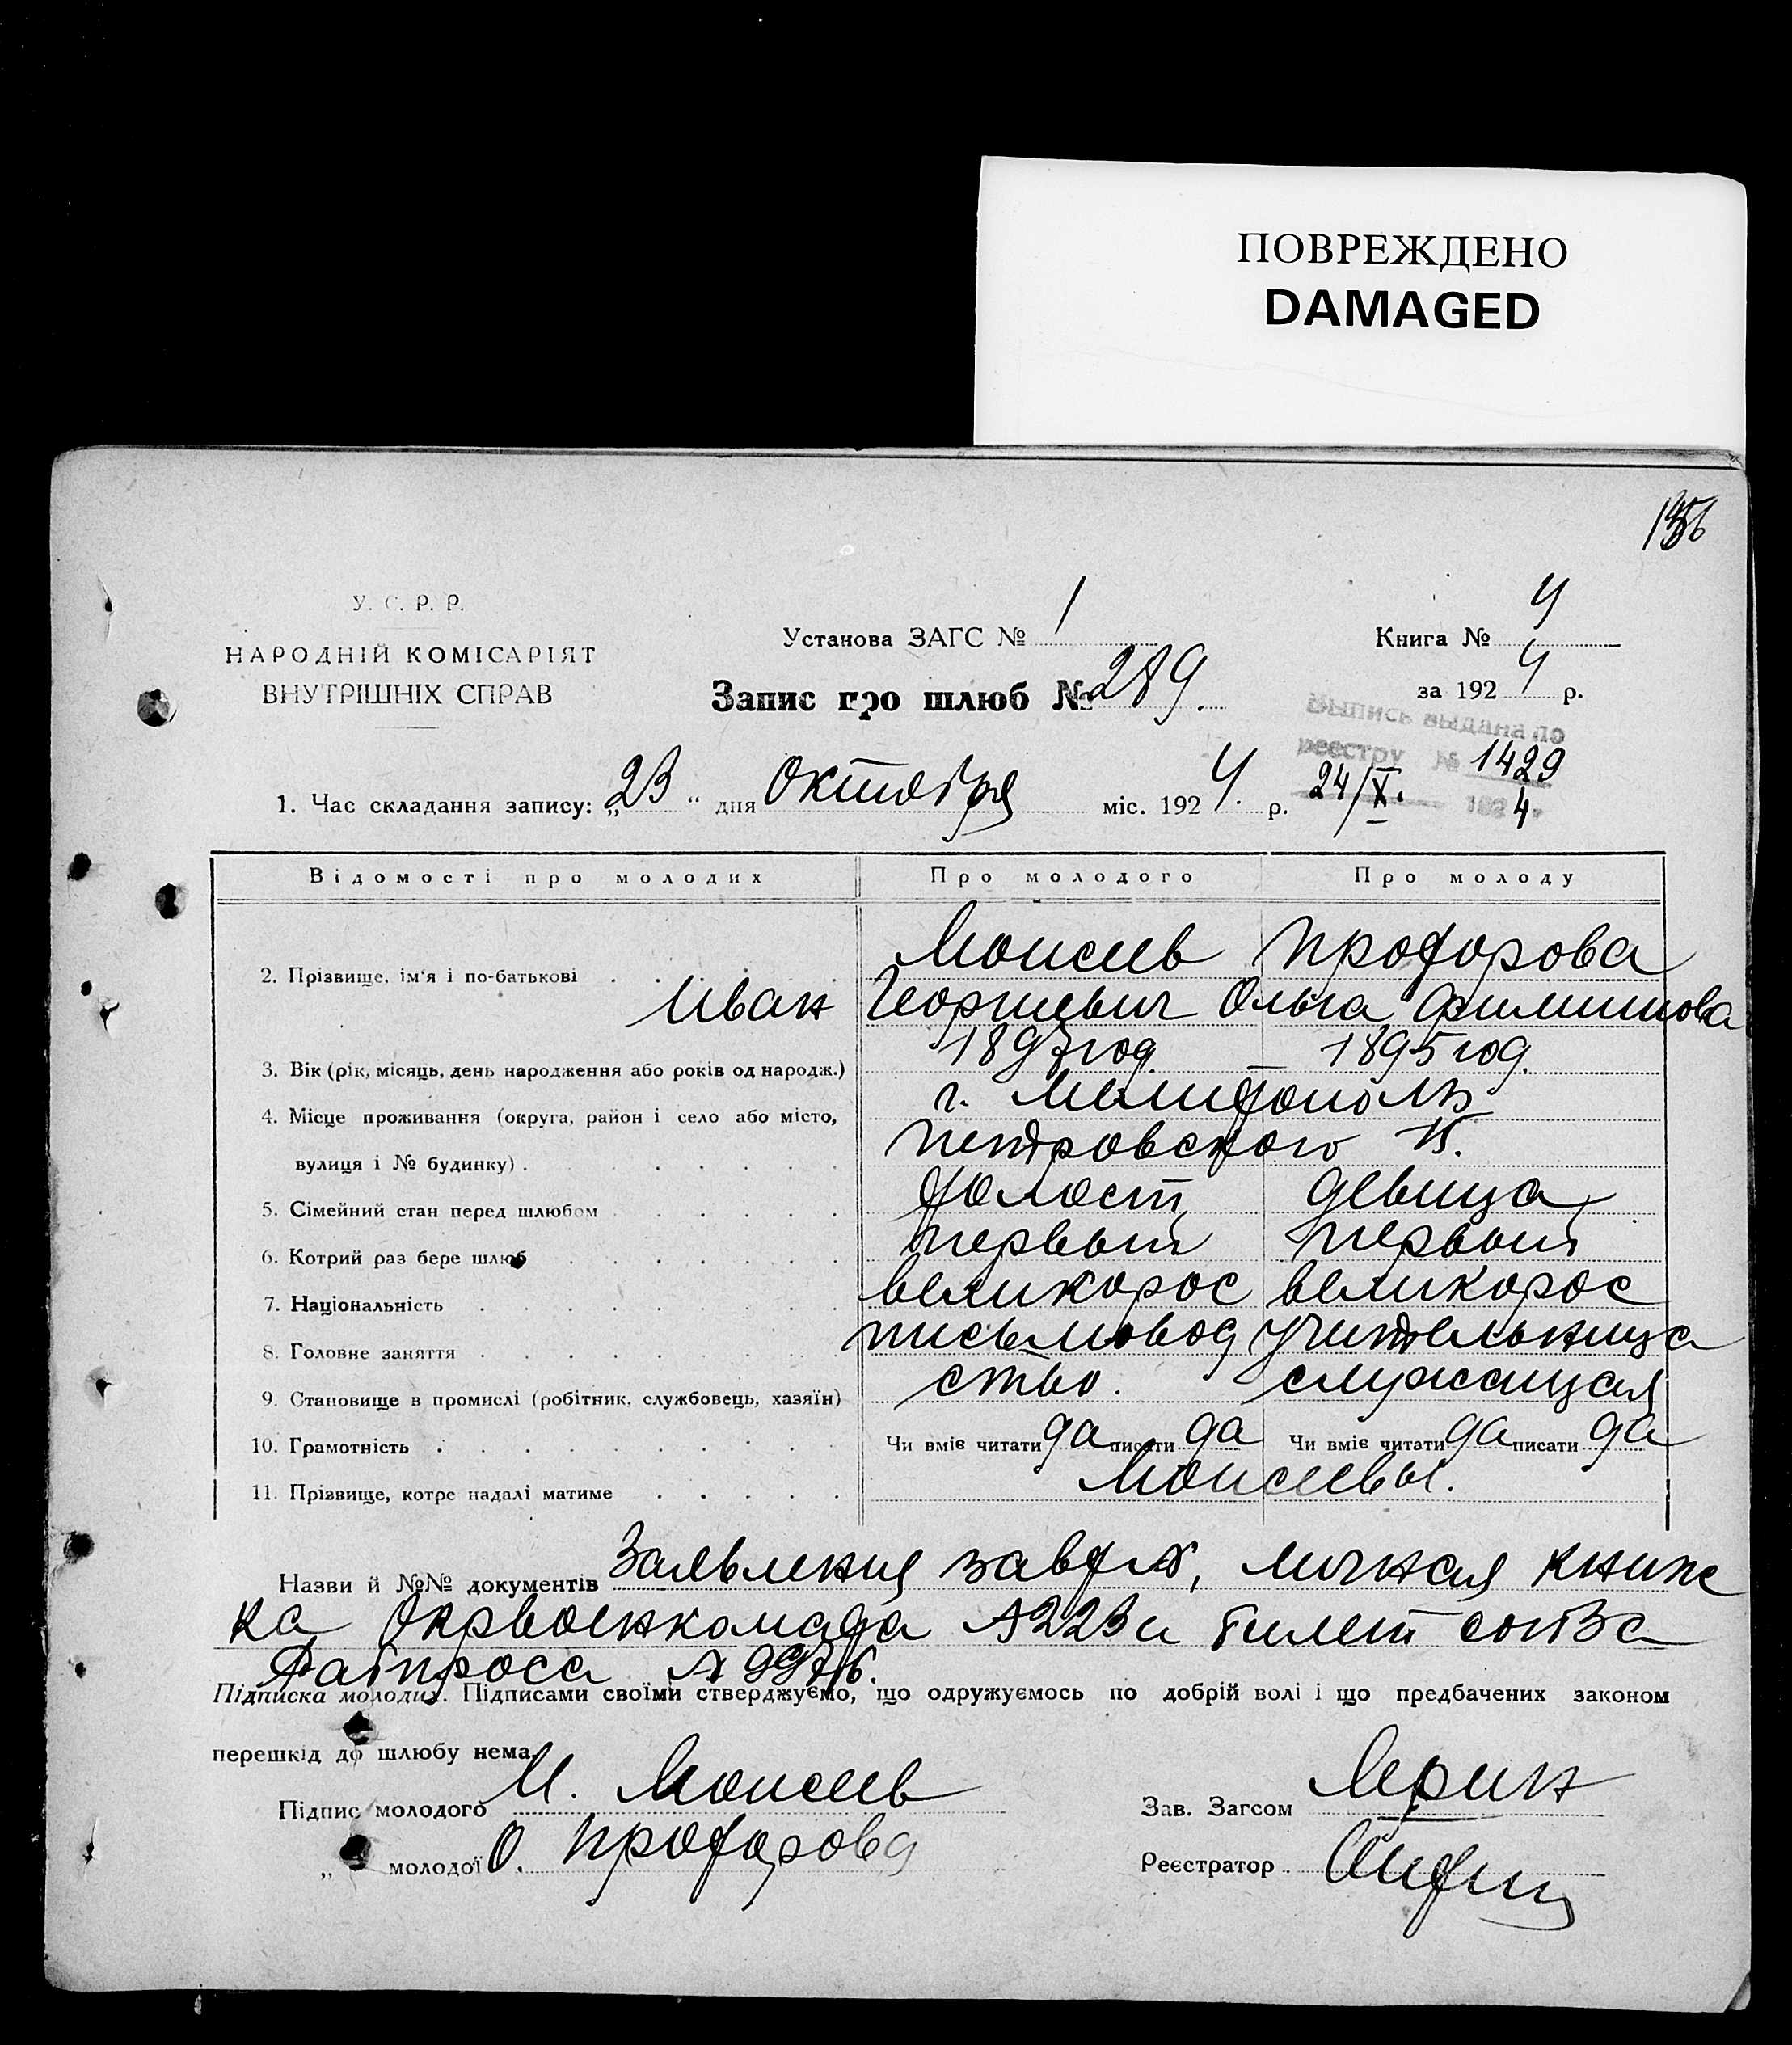 ПОВРЕЖДЕНО
DAMAGED
У. С. Р. Р.
НАРОДНІЙ КОМІСАРІЯТ
ВНУТРІШНІХ СПРАВ
Установа ЗАГС № 1
Книга № 4
за 1924 р.
Запис про шлюб № 289.
Выпись выдана по
реестру № 1429
24/X. 1924
1. Час складання запису: „23“ дня октября міс. 1924. р.
Відомості про молодих Про молодого Про молоду
Моисеев Прохорова
2. Прізвище, ім'я і по-батькові
Иван Георгиевич Ольга Филиппова
1897 год. 1895 год.
3. Вік (рік, місяць, день народження або років од народж.)
г. Мелитополь
4. Місце проживання (округа, район і село або місто,
Петровского 15.
вулиця і № будинку).
5. Сімейний стан перед шлюбом холост девица
6. Котрий раз бере шлюб первый первый
7. Національність великорос великорос
8. Головне заняття письмовод учительница
9. Становище в промислі (робітник, службовець, хазяїн) ство. служащая
10. Грамотність Чи вміє читати да писати да Чи вміє читати да писати да
11. Прізвище, котре надалі матиме Моисеевы.
Назви й №№ документів Заявления личная книж
ка Окрвоенкомада № 223 и билет союза
Рабпроса №
Підписка молодих. Підписами своїми стверджуємо, що одружуємось по добрій волі і що предбачених законом
перешкід до шлюбу нема.
Підпис молодого И. Моисеев
Зав. Загсом
„ молодої О. Прохорова
Реєстратор